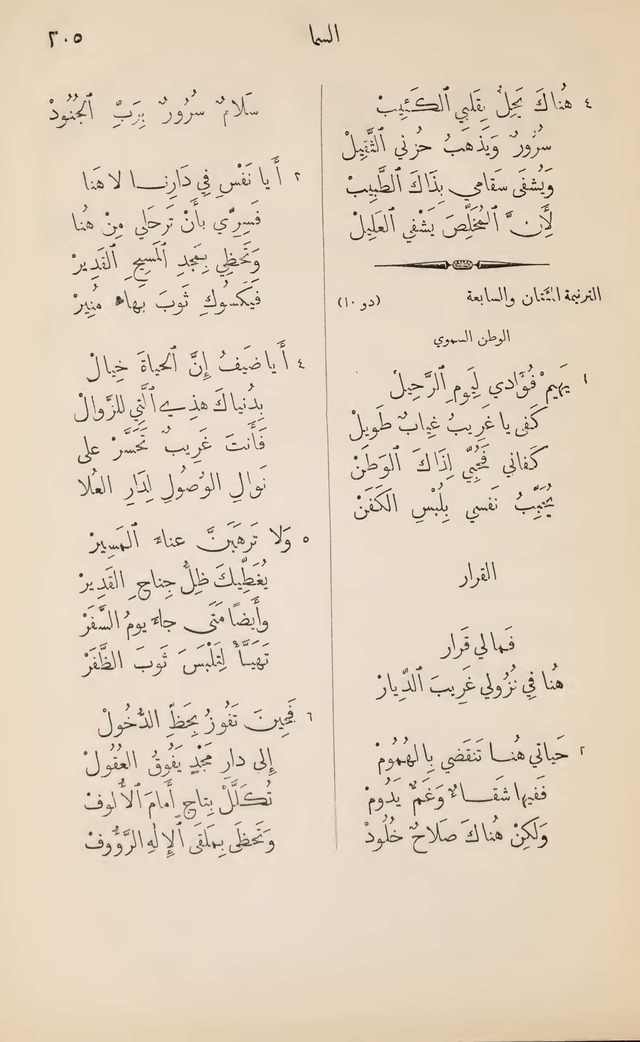 السما
٣٠٥
٤ هُناكَ يَحِلُّ بِقَلبي الكَئِيبْ
سُرُورٌ وَيَذهَبُ حُزني الثَّقِيلْ
وَيُشفَى سَقامي بِذَاكَ الطَّبِيبْ
لِأَنَّ المُخَلِّصَ يَشْفي العَلِيلْ
الترنيمة المئتان والسابعة (دو ١٠)
الوطن السموي
١ يَهِيمُ فُؤَادي لِيَومِ الرَّحِيلْ
كَفى يا غَرِيبُ غِيابٌ طَوِيلْ
كَفاني فَحُبِّي لِذَاكَ الوَطَنْ
يُحَبِّبُ نَفسي بِلُبْسِ الكَفَنْ
القرار
فَمالي قَرار
هُنا في نُزُولي غَرِيبَ الدِّيارْ
٢ حَياتي هُنا تَنقَضي بِالهُمُومْ
فَفيها شَقاءٌ وَغَمٌّ يَدُومْ
وَلكِنْ هُناكَ صَلاحٌ خُلُودْ
سَلامٌ سُرُورٌ بِرَبِّ الجُنُودْ
٣ أَيا نَفْسِ في دَارِنا لا هَنا
فَسِرِّي بأَنْ تَرحَلي مِنْ هُنا
وَتَحظَي بِمَجدِ المَسيحِ القَدِيرْ
فَيَكسُوكِ ثَوبَ بَهاءٍ مُنِيرْ
٤ أَيا ضَيفُ إِنَّ الحياةَ خِيالْ
بِدُنياكَ هذِي الَّتي للزَّوالْ
فَأَنتَ غَرِيبٌ تَحَسَّرْ على
نَوالِ الوُصُولِ لِدَارِ العُلا
٥ وَلا تَرهَبَنَّ عناءَ المَسِيرْ
يُغَطِّيكَ ظِلُّ جِناحِ القَدِيرْ
وأَيضًا مَتَى جاءَ يومُ السَّفَرْ
تَهَيَّأْ لِتَلْبَسَ ثَوبَ الظَّفَرْ
٦ فَحِينَ تَفُوزُ بِحَظِّ الدُّخُولْ
إِلى دارِ مَجْدٍ يَفُوقُ العُقُولْ
تُكَلَّلْ بِتاجٍ أَمامَ الأُلُوفْ
وَتَحظَى بِمَلقَى الإِلهِ الرَّؤُوفْ